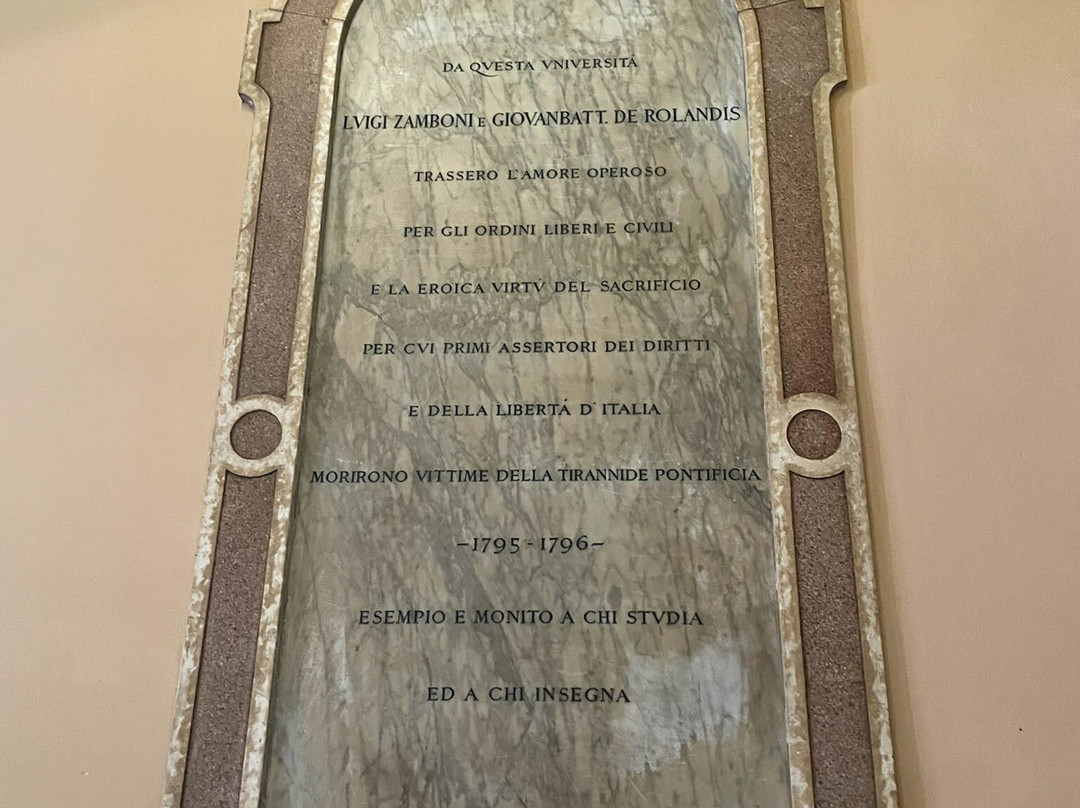 DA QVESTA VNIVERSITÀ
LVIGI ZAMBONI E GIOVANBATT. DE ROLANDIS
TRASSERO L'AMORE OPEROSO
PER GLI ORDINI LIBERI E CIVILI
E LA EROICA VIRTÙ DEL SACRIFICIO
PER CVI PRIMI ASSERTORI DEI DIRITTI
E DELLA LIBERTÀ D'ITALIA
MORIRONO VITTIME DELLA TIRANNIDE PONTIFICIA
-1795-1796-
ESEMPIO E MONITO A CHI STVDIA
ED A CHI INSEGNA